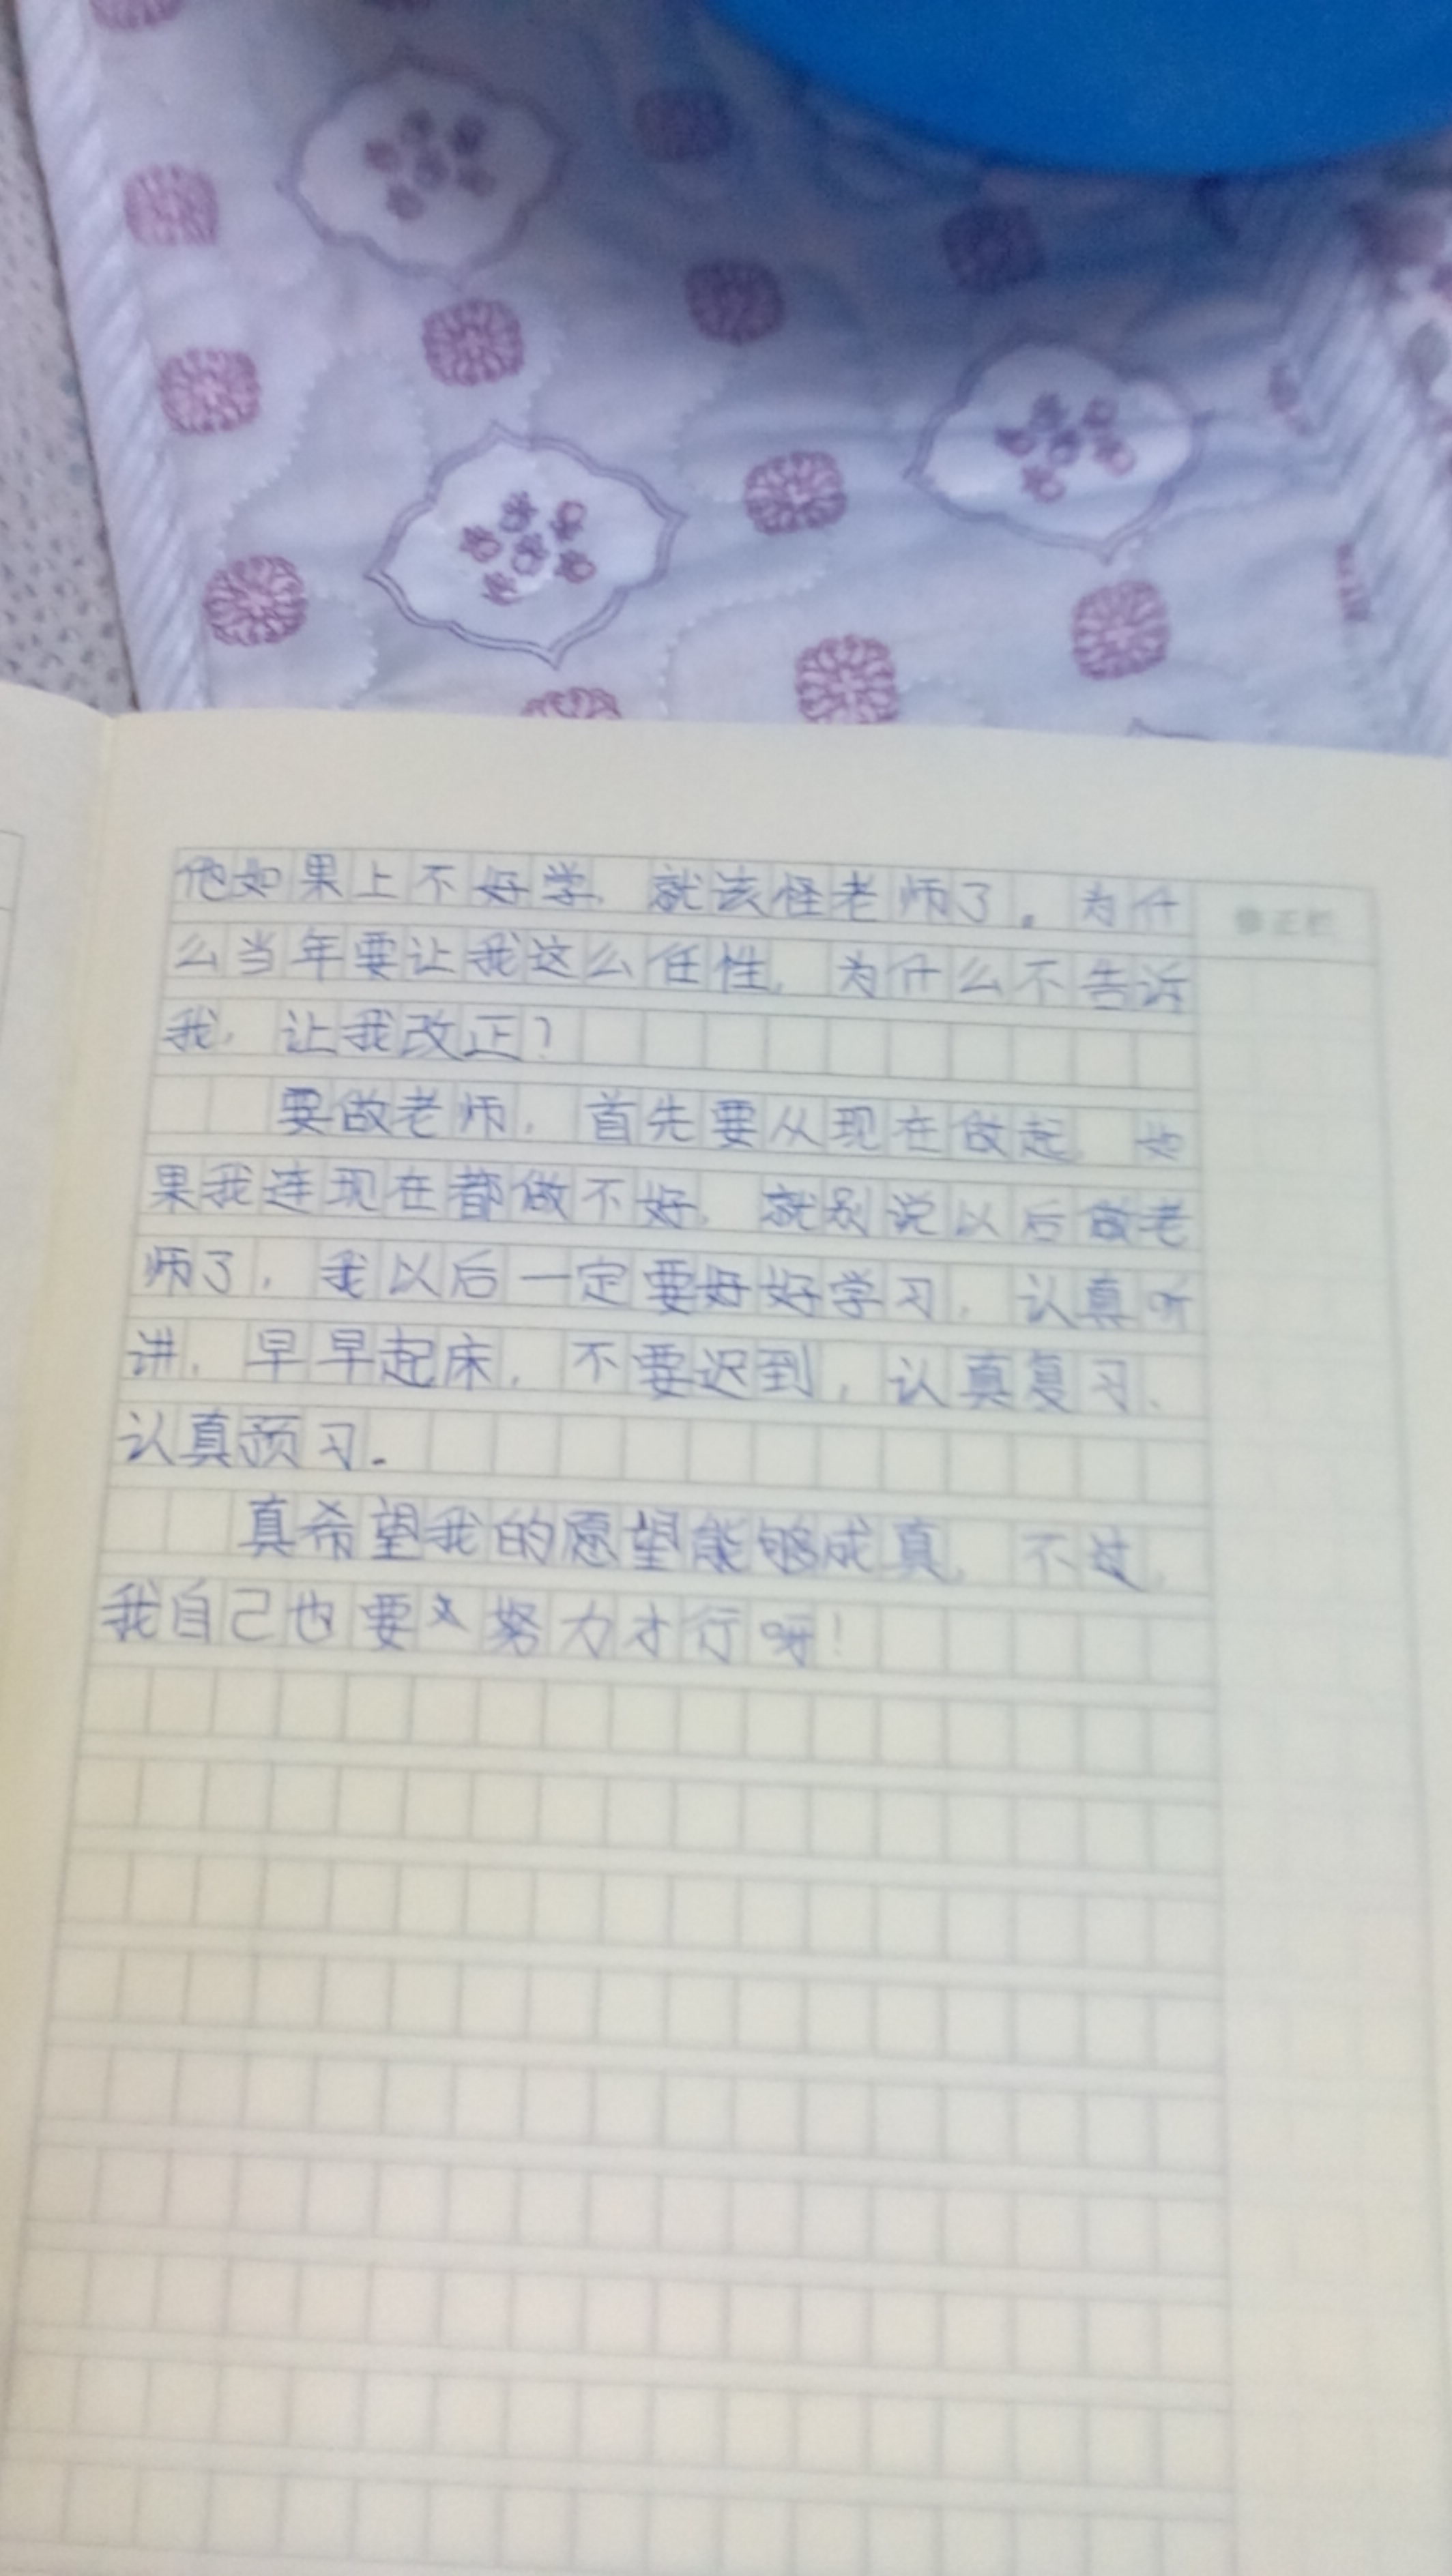 他如果上不好学，就该怪老师了。为什
么当年要让我这么任性，为什么不告诉
我，让我改正？
要做老师，首先要从现在做起，如
果我连现在都做不好，就别说以后做老
师了，我以后一定要好好学习，认真听
讲，早早起床，不要迟到，认真复习、
认真预习。
真希望我的愿望能够成真，不过，
我自己也要努力才行呀！
修正栏